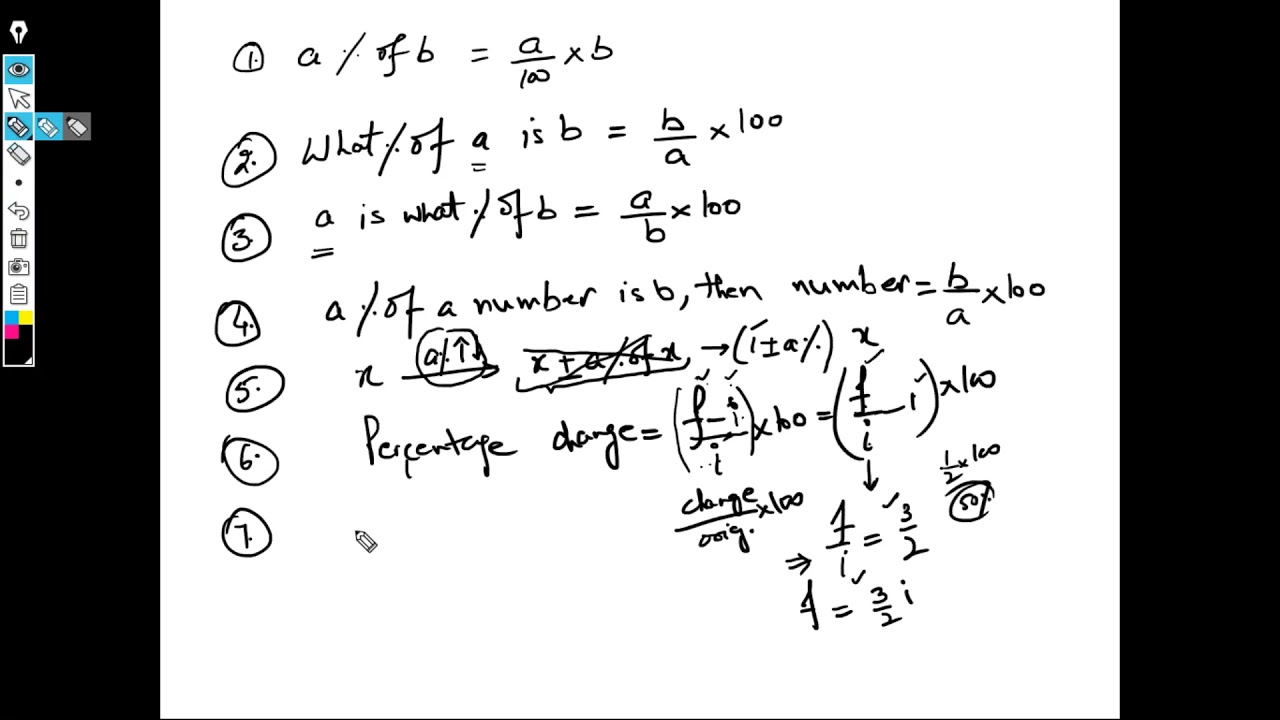 1. a % of b = a/100 × b
2. What % of a is b = b/a × 100
3. a is what % of b = a/b × 100
4. a % of a number is b, then number = b/a × 100
5. x a% ↑↓ x ± a% of x → (1 ± a%) x
6. Percentage change = (f - i / i) × 100 = (f/i - 1) × 100
change/orig. × 100
1/2 × 100
50%
f/i = 3/2
⇒ f = 3/2 i
7.